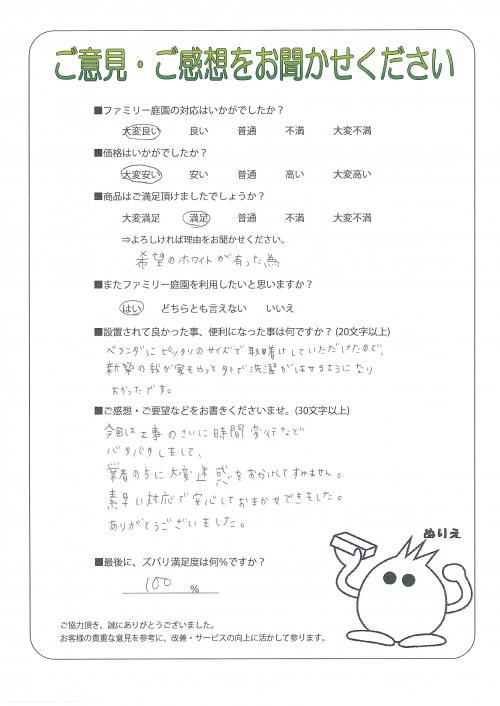 ご意見・ご感想をお聞かせください
■ファミリー庭園の対応はいかがでしたか？
大変良い 良い 普通 不満 大変不満
■価格はいかがでしたか？
大変安い 安い 普通 高い 大変高い
■商品はご満足頂けましたでしょうか？
大変満足 満足 普通 不満 大変不満
⇒よろしければ理由をお聞かせください。
希望のホワイトが有った為
■またファミリー庭園を利用したいと思いますか？
はい どちらとも言えない いいえ
■設置されて良かった事、便利になった事は何ですか？(20文字以上)
ベランダにピッタリのサイズで取着けしていただけたので、
新築の我が家もやっと外で洗濯がほせるようになり
よかったです。
■ご感想・ご要望などをお書きくださいませ。(30文字以上)
今回は工事のさいに時間変行など
バタバタしまして、
業者の方に大変迷惑をおかけしてすみません。
素早い対応で安心しておまかせできました。
ありがとうございました。
■最後に、ズバリ満足度は何%ですか？
100 %
ぬりえ
ご協力頂き、誠にありがとうございました。
お客様の貴重な意見を参考に、改善・サービスの向上に活かして参ります。